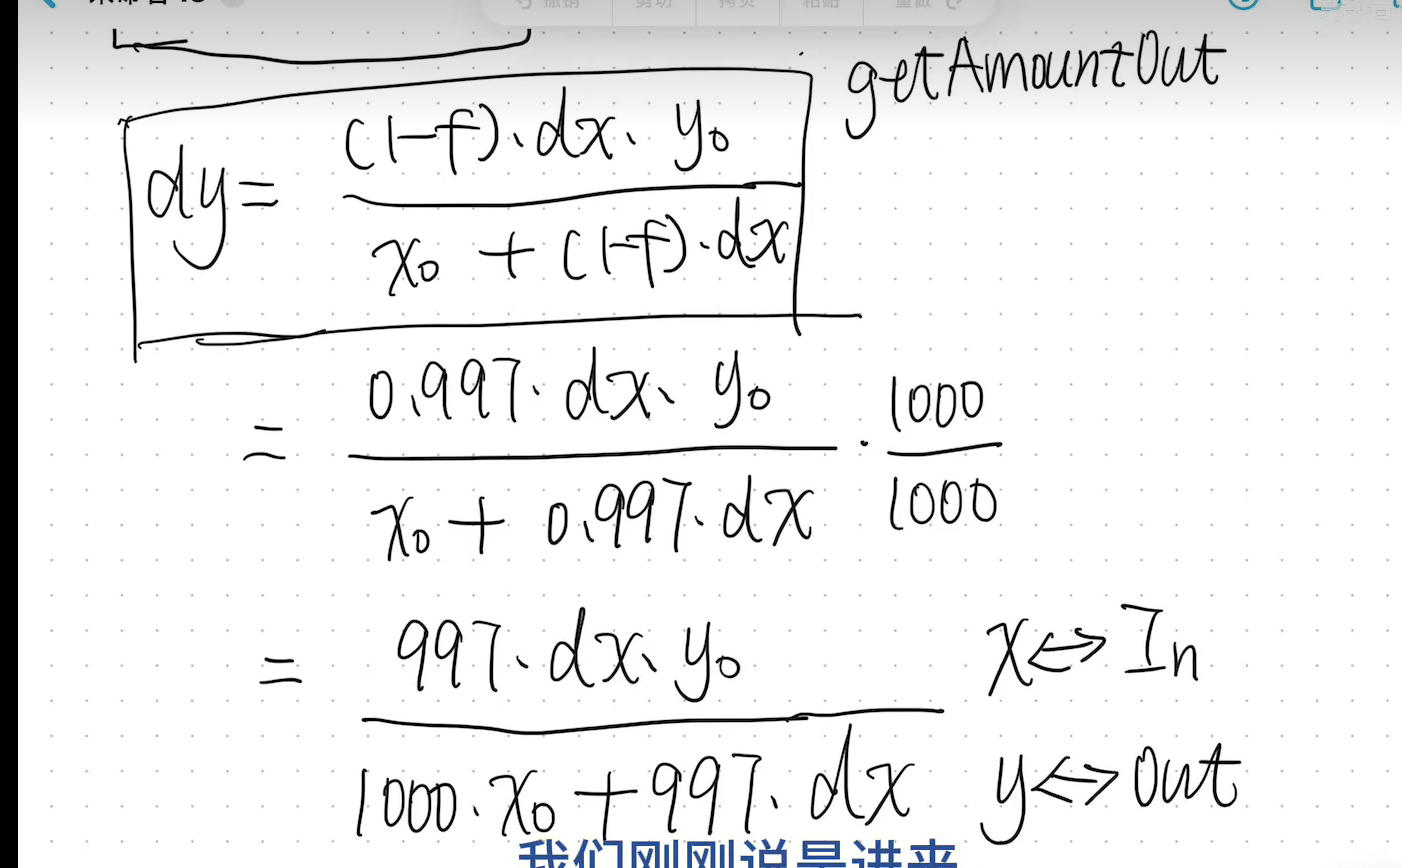 撤销 剪切 拷贝 粘贴 重做
getAmountOut
dy = (1-f)·dx·y₀ / x₀ + (1-f)·dx
= 0.997·dx·y₀ / x₀ + 0.997·dx · 1000 / 1000
= 997·dx·y₀ / 1000·x₀ + 997·dx
x⇔In
y⇔Out
我们刚刚说是进来